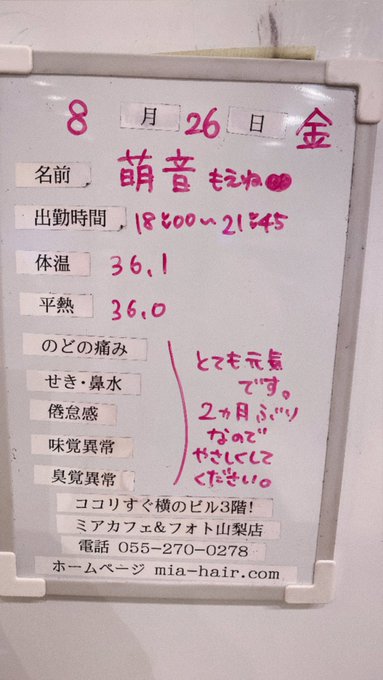 8月26日 金
名前 萌音 もえね
出勤時間 18:00〜21:45
体温 36.1
平熱 36.0
のどの痛み
せき・鼻水
倦怠感
味覚異常
臭覚異常
とても元気
です。
2ヵ月ぶり
なので
やさしくして
ください。
ココリすぐ横のビル3階!
ミアカフェ&フォト山梨店
電話 055-270-0278
ホームページ mia-hair.com